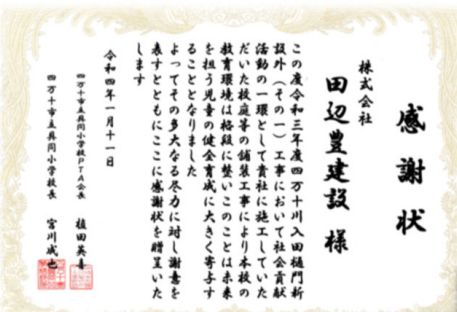 感謝状
株式会社
田辺豊建設 様
この度令和三年度四万十川入田樋門新
設外（その一）工事において社会貢献
活動の一環として貴社に施工していた
だいた校庭等の舗装工事により本校の
教育環境は格段に整いこのことは未来
を担う児童の健全育成に大きく寄与す
ることとなりました
よってその多大なる尽力に対し謝意を
表すとともにここに感謝状を贈呈いた
します
令和四年一月十一日
四万十市立具同小学校PTA会長 植田英
四万十市立具同小学校長 宮川成也